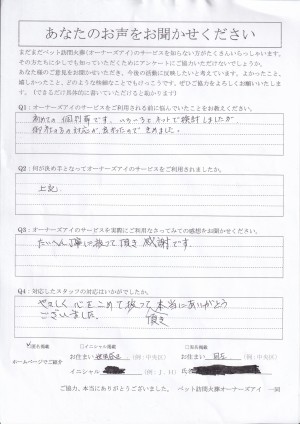 あなたのお声をお聞かせください
まだまだペット訪問火葬(オーナーズアイ)のサービスを知らない方がたくさんいらっしゃいます。
その方たちに少しでも知っていただくためにアンケートにご協力いただけないでしょうか。
あなた様のご意見をお聞かせいただき、今後の活動に反映したいと考えています。よかったこと、
嬉しかったこと、どのような些細なことでもけっこうです。ぜひご協力をよろしくお願いいたします。
(できるだけ具体的に書いていただけると助かります)
Q1:オーナーズアイのサービスをご利用される前に悩んでいたことをお教えください。
初めての個別葬です。いろいろとネットで検討しましたが
御社の の対応が良かったので きめました。
Q2:何が決め手となってオーナーズアイのサービスをご利用されましたか。
上記
Q3:オーナーズアイのサービスを実際にご利用なさってみての感想をお聞かせください。
たいへん丁寧に扱って頂き 感謝です。
Q4:対応したスタッフの対応はいかがでしたか。
やさしく 心をこめて扱って頂き 本当にありがとう
ございました。
□匿名掲載 □イニシャル掲載 □実名掲載
ホームページでご紹介
お住まい (例:中央区) お住まい (例:中央区)
イニシャル (例:J.H) 氏名
ご協力、本当にありがとうございました。 ペット訪問火葬オーナーズアイ 一同